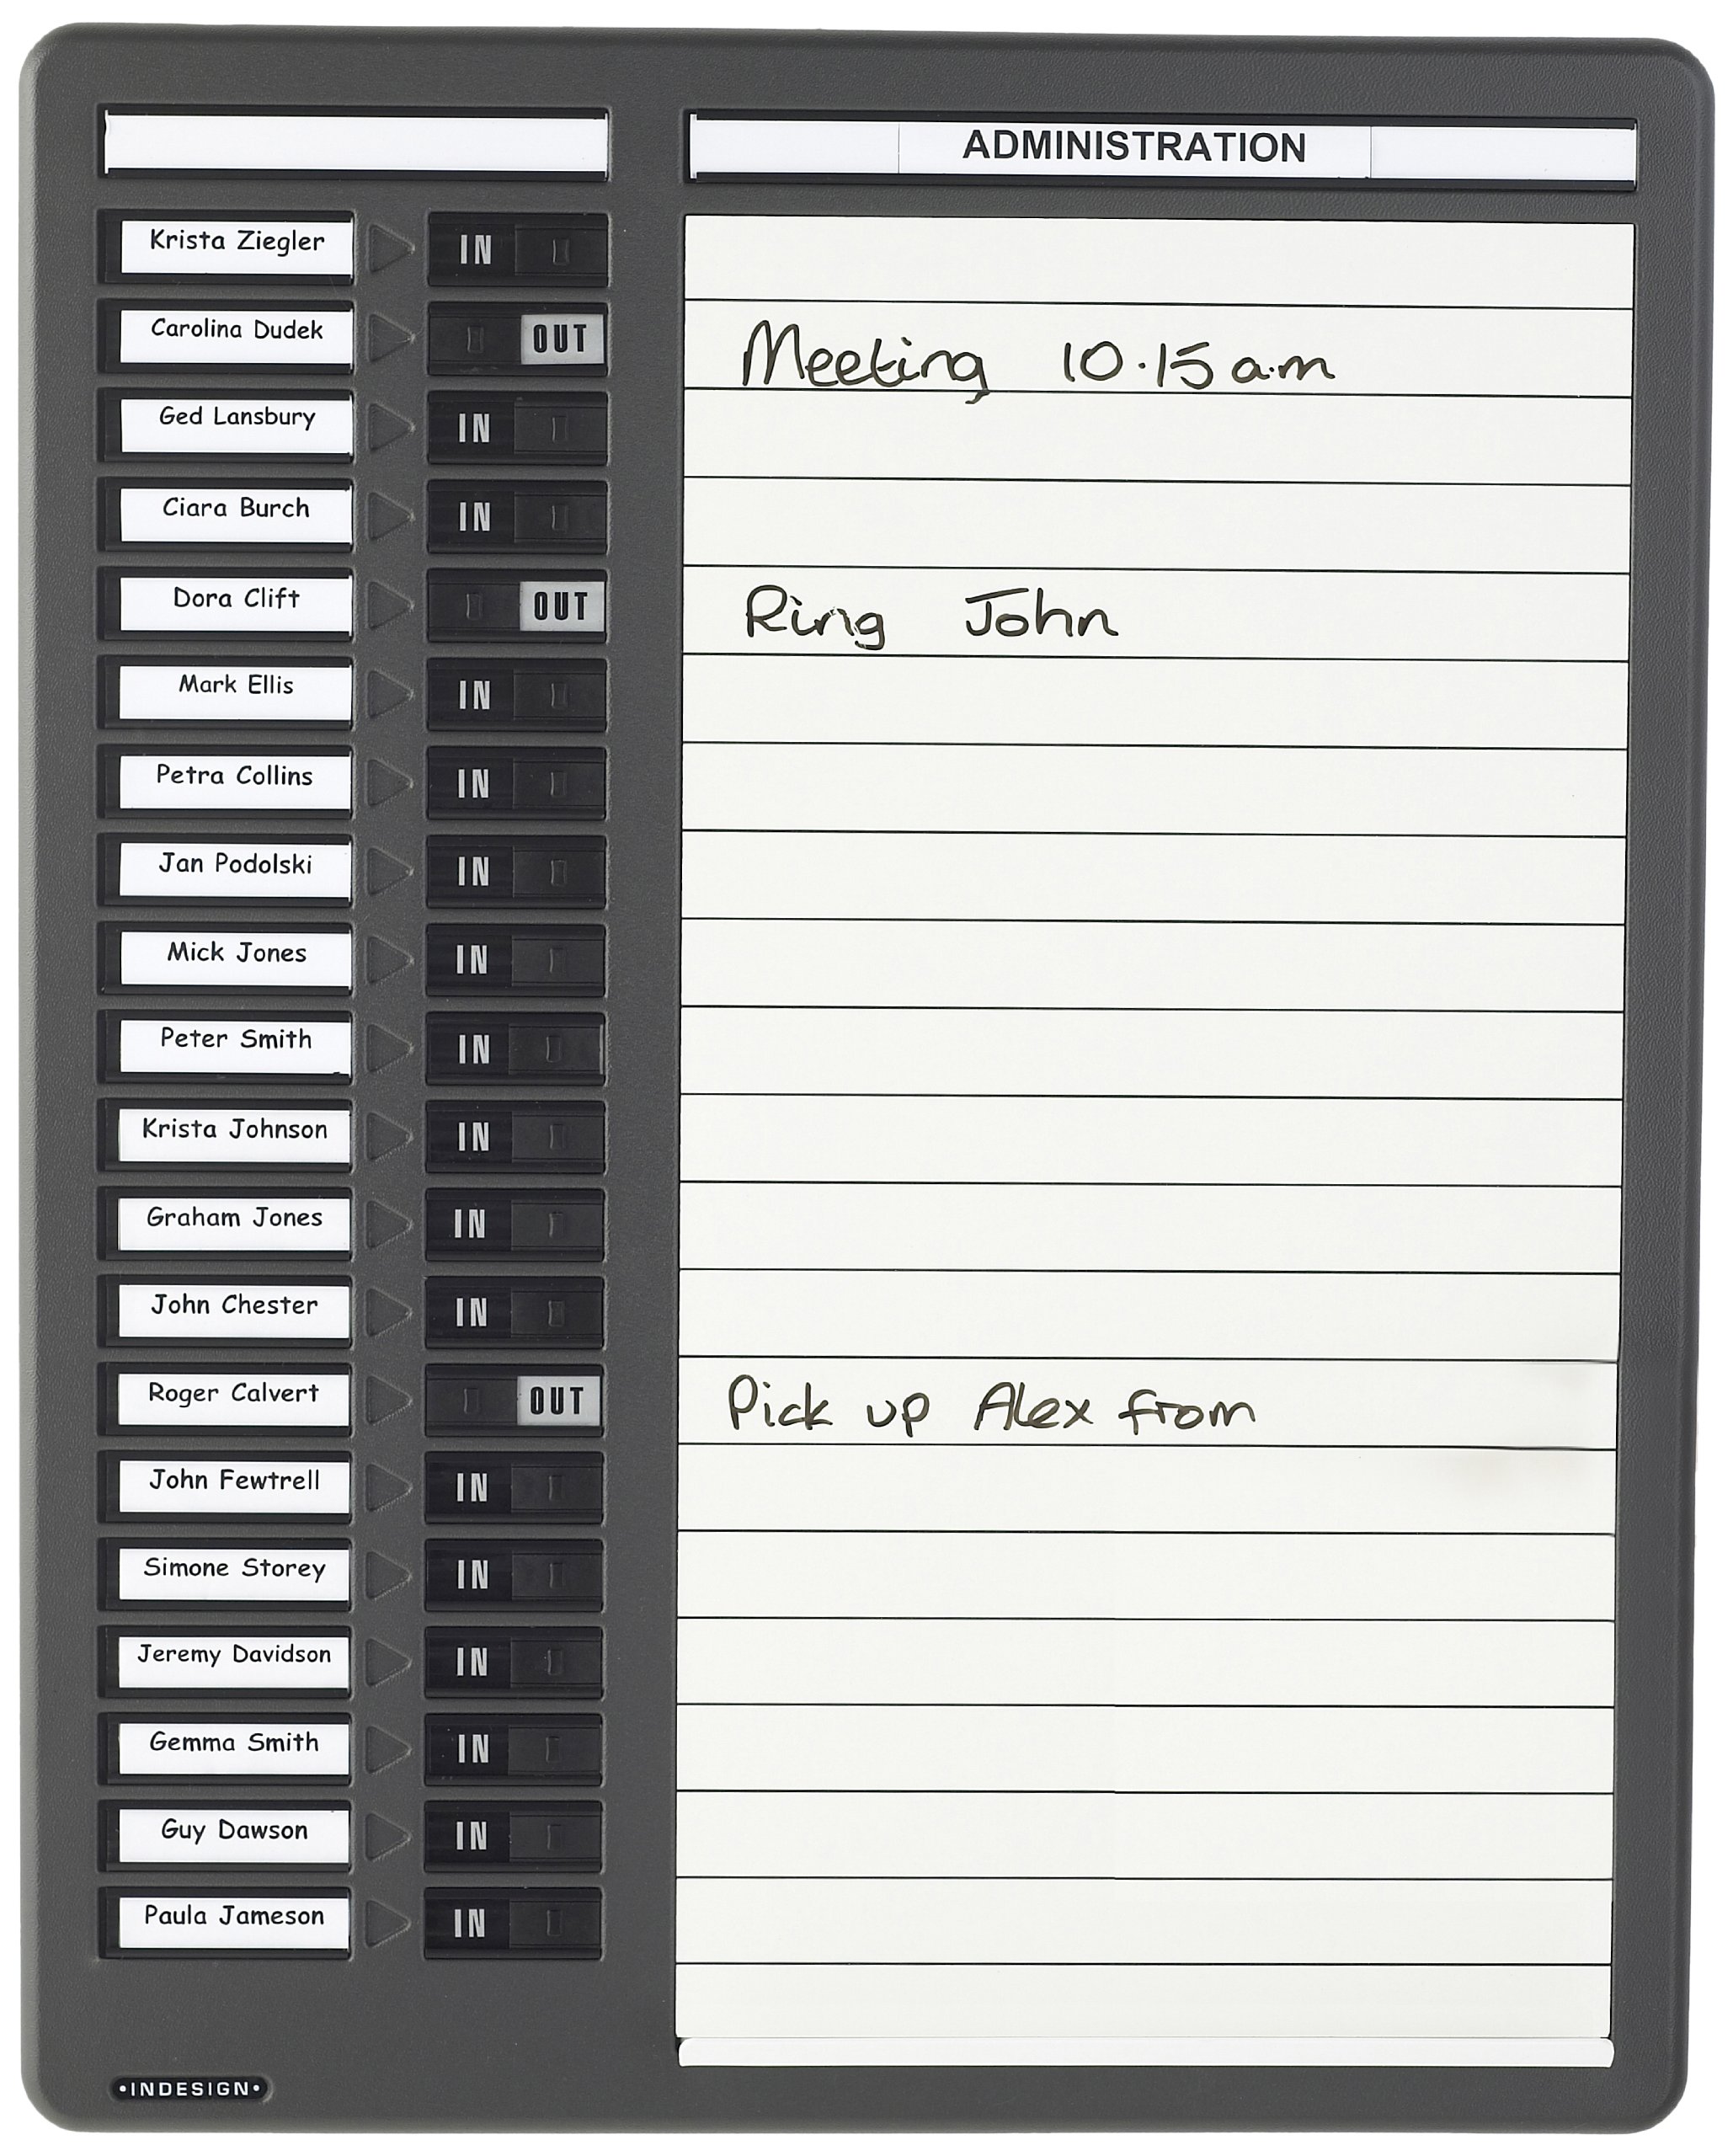 ADMINISTRATION
Krista Ziegler IN
Carolina Dudek OUT Meeting 10.15 a.m
Ged Lansbury IN
Ciara Burch IN
Dora Clift OUT Ring John
Mark Ellis IN
Petra Collins IN
Jan Podolski IN
Mick Jones IN
Peter Smith IN
Krista Johnson IN
Graham Jones IN
John Chester IN
Roger Calvert OUT Pick up Alex from
John Fewtrell IN
Simone Storey IN
Jeremy Davidson IN
Gemma Smith IN
Guy Dawson IN
Paula Jameson IN
•INDESIGN•